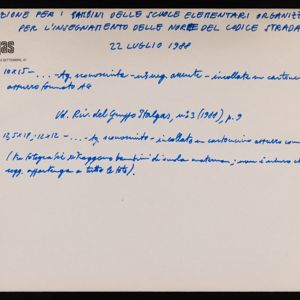 ZIONE PER I BAMBINI DELLE SCUOLE ELEMENTARI ORGANIZZ
PER L'INSEGNAMENTO DELLE NORME DEL CODICE STRADA
22 LUGLIO 1988
gas
10x15 - .... - Ag. sconosciuta - incollate su cartoncino
azzurro formato A4
Vd. Riv. del Gruppo Italgas, n.3 (1988), p. 9
13,5x19; 12x12 - .... - Ag. sconosciuta - incollate su cartoncino azzurro
(Fotografie ritraggono bambini di scuola materna; non è
sogg. appartenga a tutte le foto).